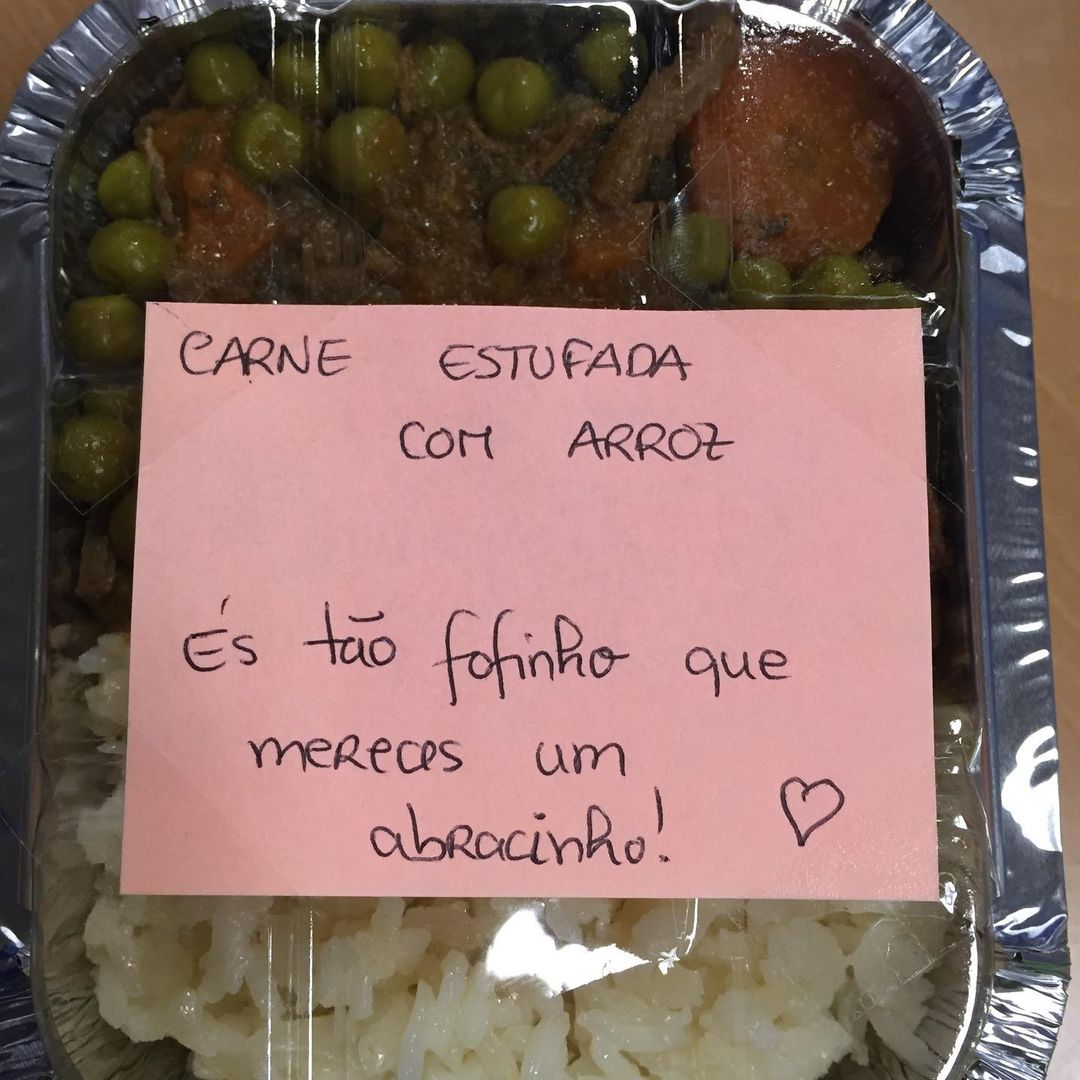 CARNE ESTUFADA
COM ARROZ
És tão fofinho que
mereces um
abracinho!